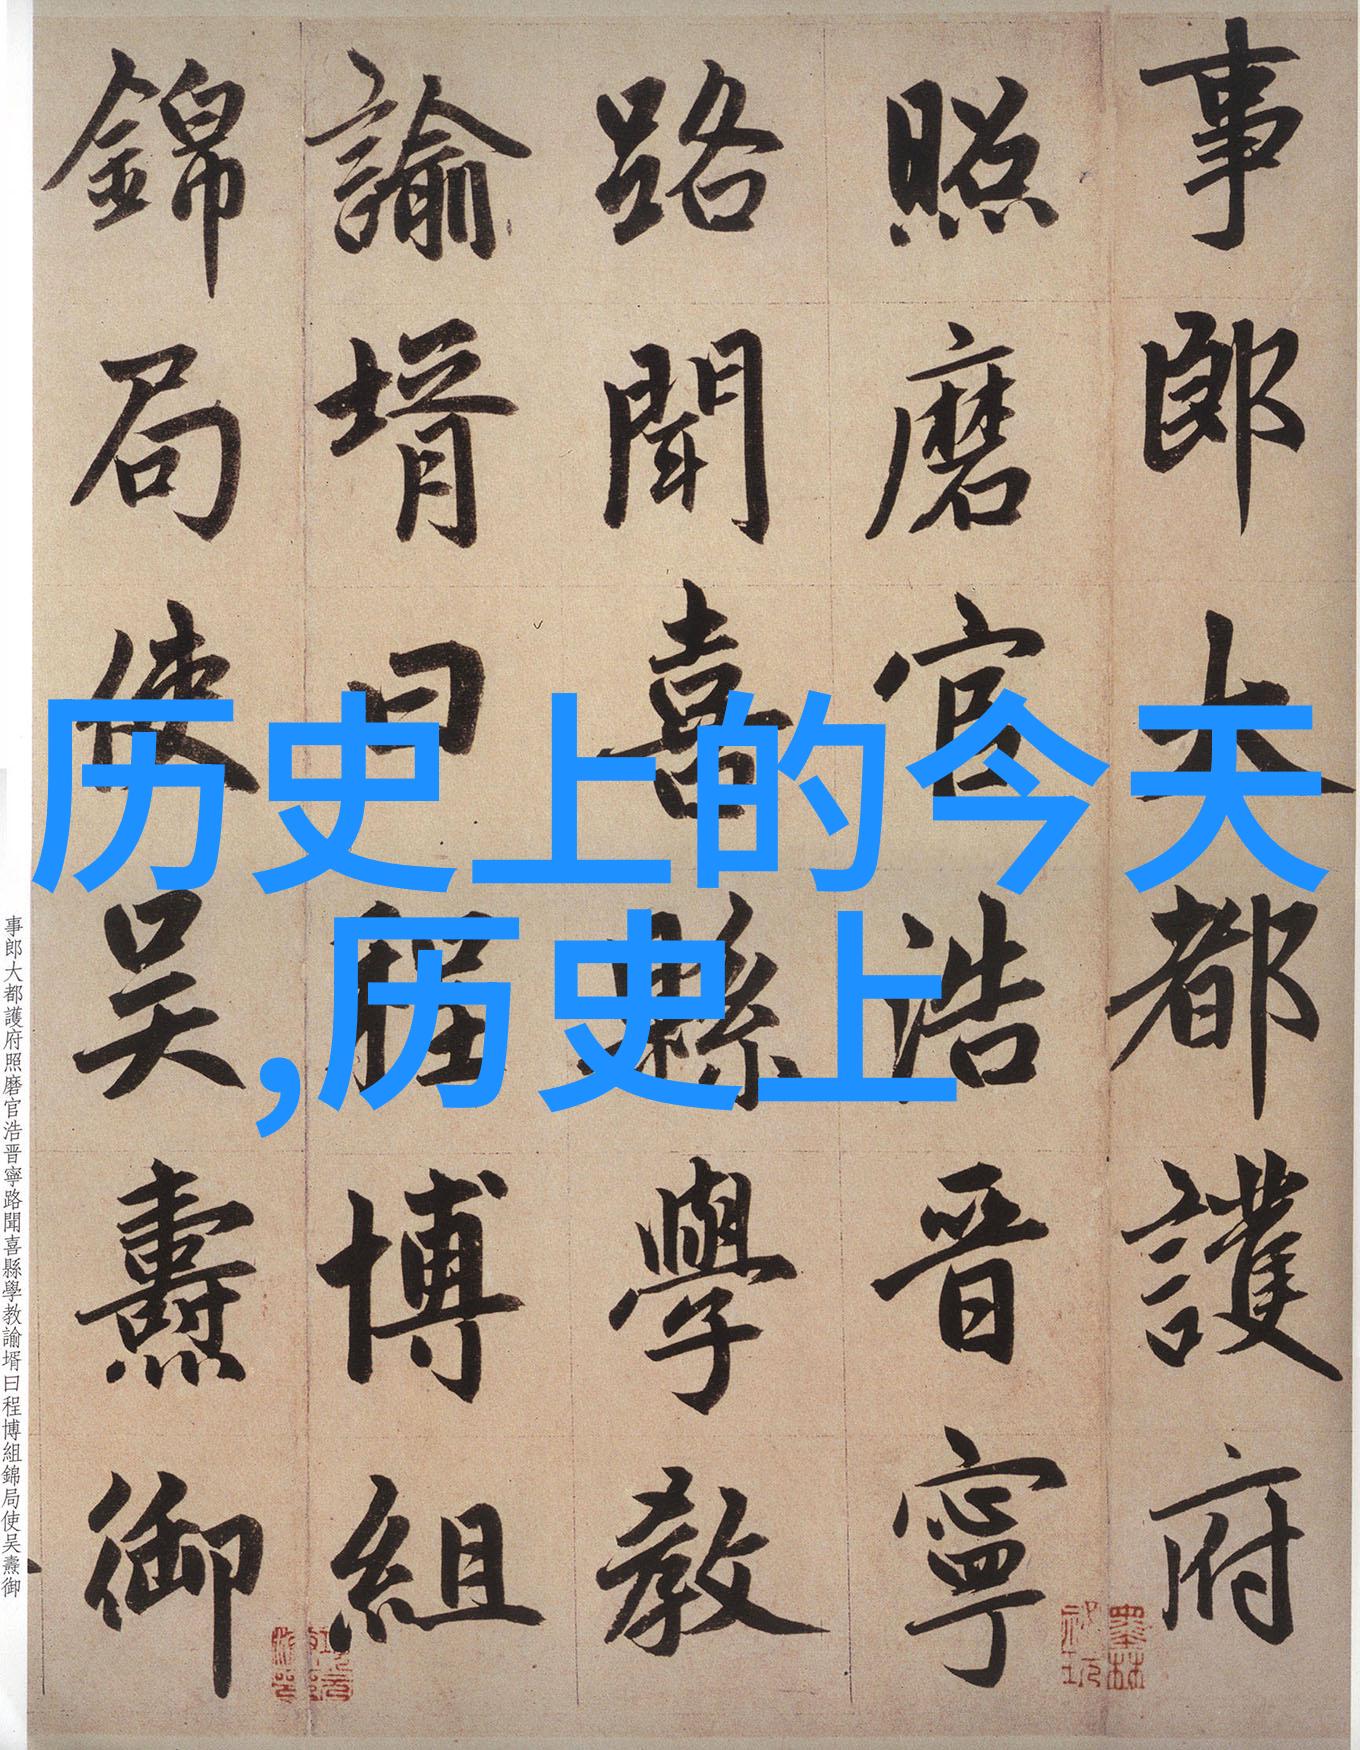 事郎大都護府
照磨官浩晋寧
路聞喜縣學教
諭壻曰程博組
錦局使吴燾御
历史上的今天
,历史上
事郎大都護府照磨官浩晋寧路聞喜縣學教諭壻曰程博組錦局使吴燾御